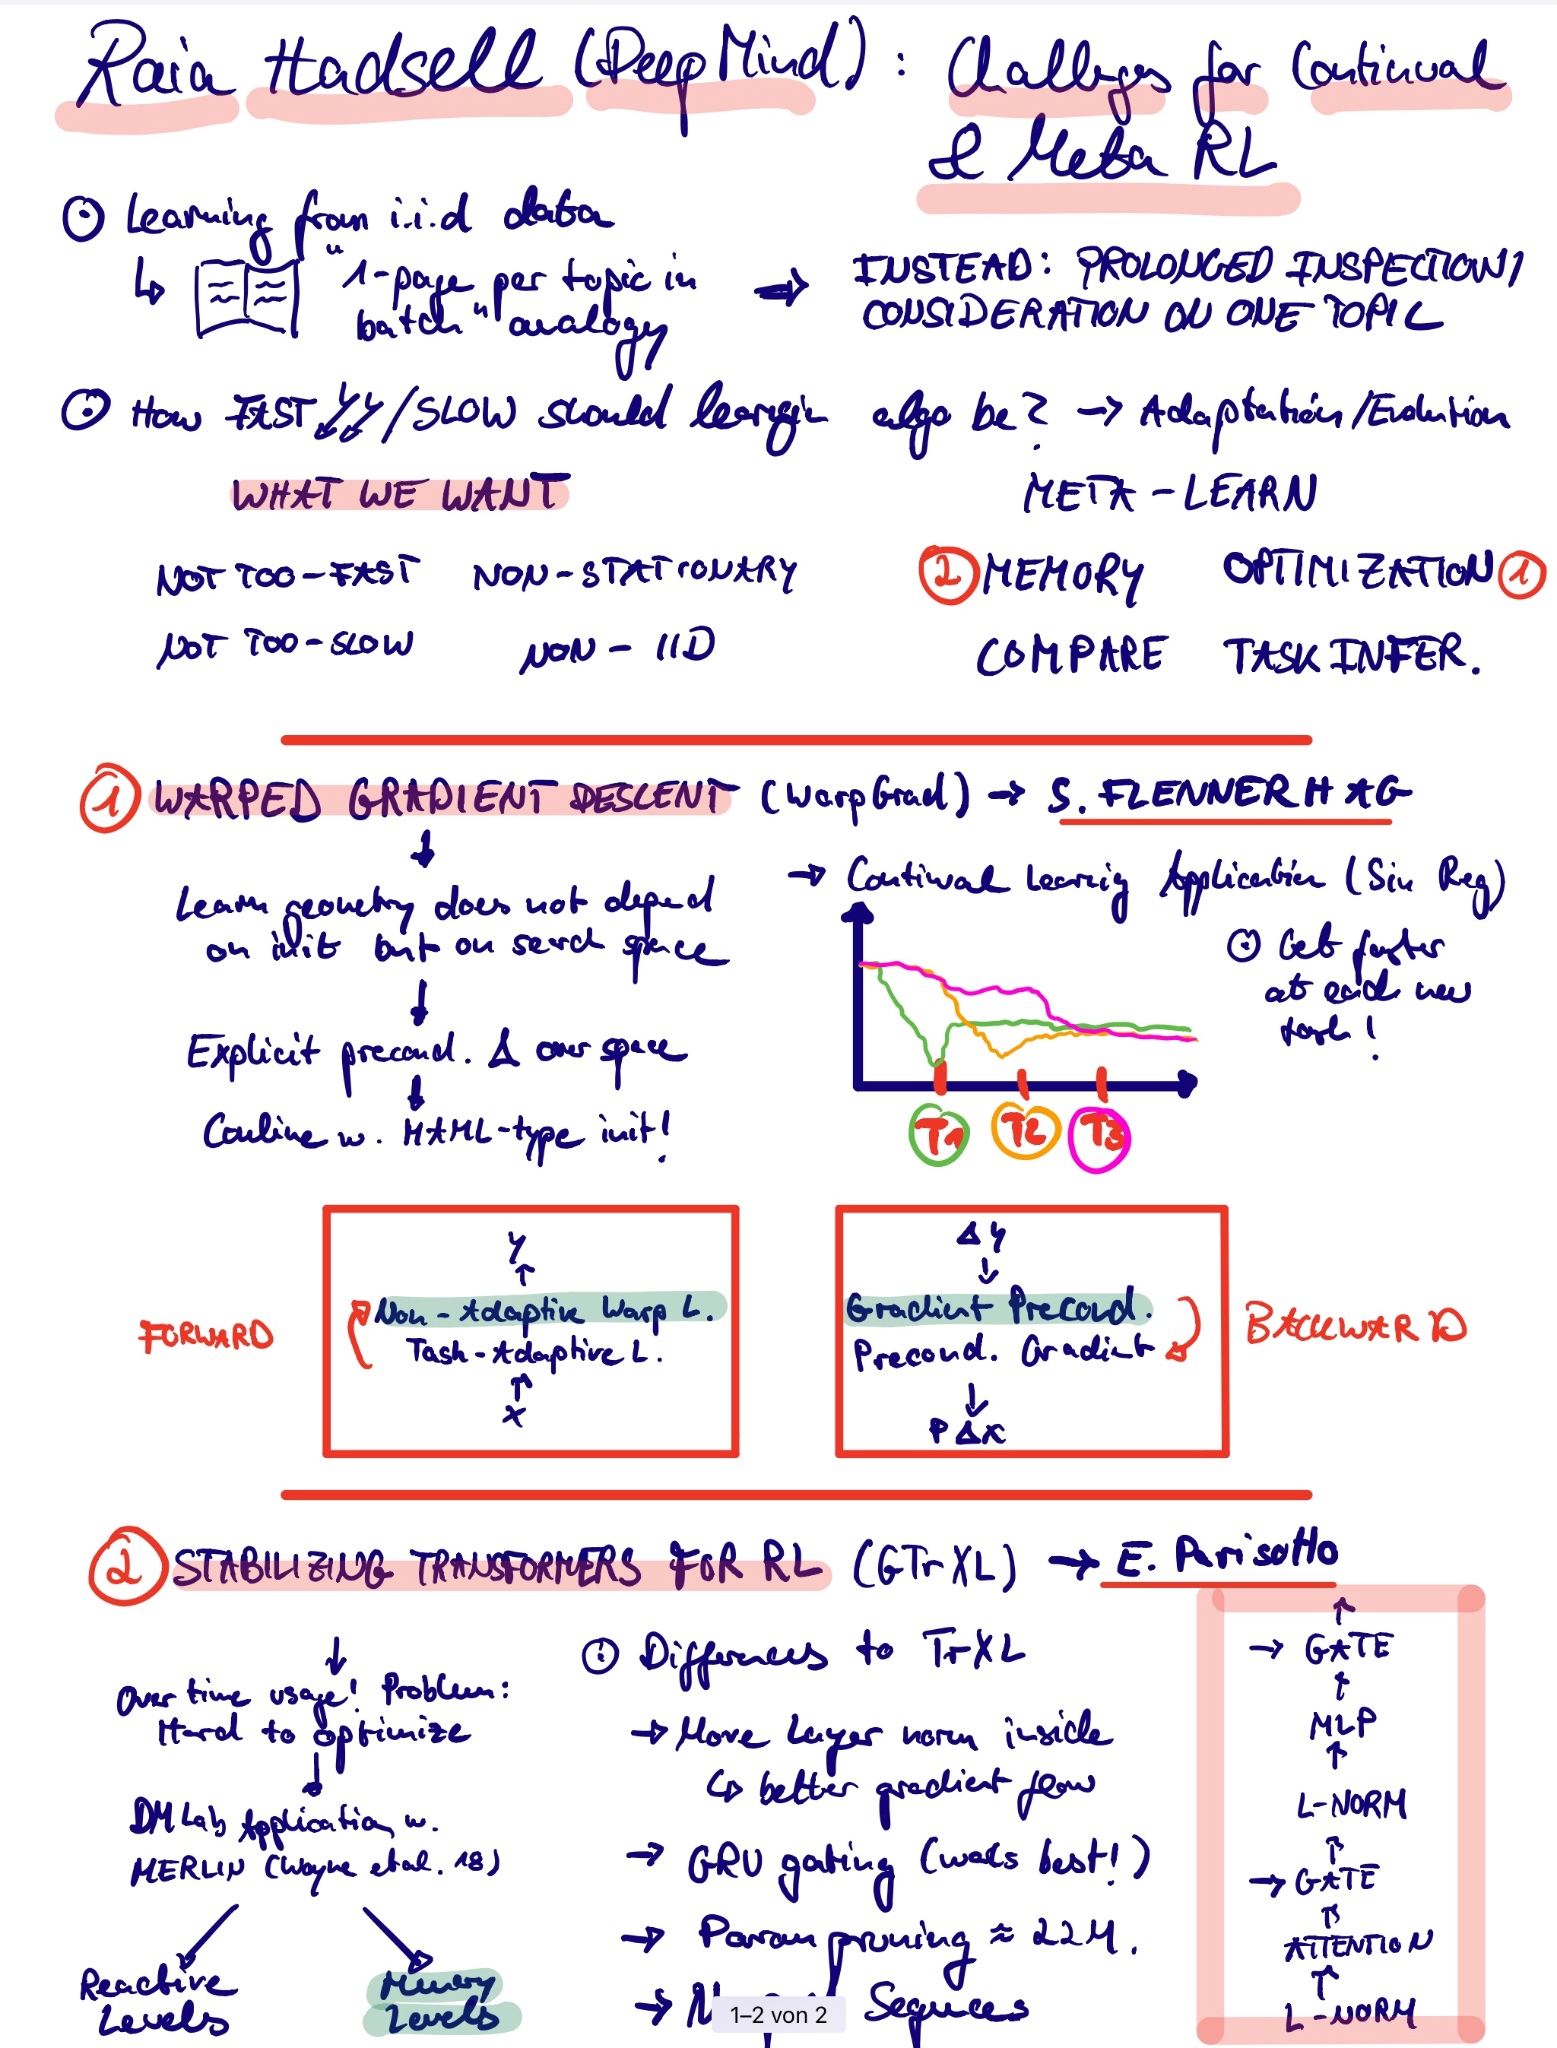 Raia Hadsell (DeepMind): Challenges for Continual
& Meta RL
Learning from i.i.d data
"1-page per topic in
batch" analogy
INSTEAD: PROLONGED INSPECTION/
CONSIDERATION ON ONE TOPIC
How FAST/SLOW should learnin algo be? → Adaptation/Evolution
WHAT WE WANT
META-LEARN
NOT TOO-FAST NON-STATIONARY
NOT TOO-SLOW NON-IID
2 MEMORY OPTIMIZATION 1
COMPARE TASK INFER.
1 WARPED GRADIENT DESCENT (WarpGrad) → S. FLENNERHAG
Learn geometry does not depend
on init but on search space
Explicit precond. Δ over space
Combine w. MAML-type init!
→ Continual Learning Application (Sin Reg)
Get faster
at each new
task!
T1 T2 T3
FORWARD
Y
Non-Adaptive Warp L.
Task-Adaptive L.
X
Δy
Gradient Precond.
Precond. Gradient
P Δx
BACKWARD
2 STABILIZING TRANSFORMERS FOR RL (GTrXL) → E. Parisotto
Over time usage! Problem:
Hard to optimize
DMLab Application w.
MERLIN (Wayne et al. 18)
Reactive
Levels
Memory
Levels
Differences to TrXL
→ Move Layer norm inside
↳ better gradient flow
→ GRU gating (works best!)
→ Param pruning ≈ 22M.
→ Sequences
1–2 von 2
→ GATE
MLP
L-NORM
→ GATE
ATTENTION
L-NORM